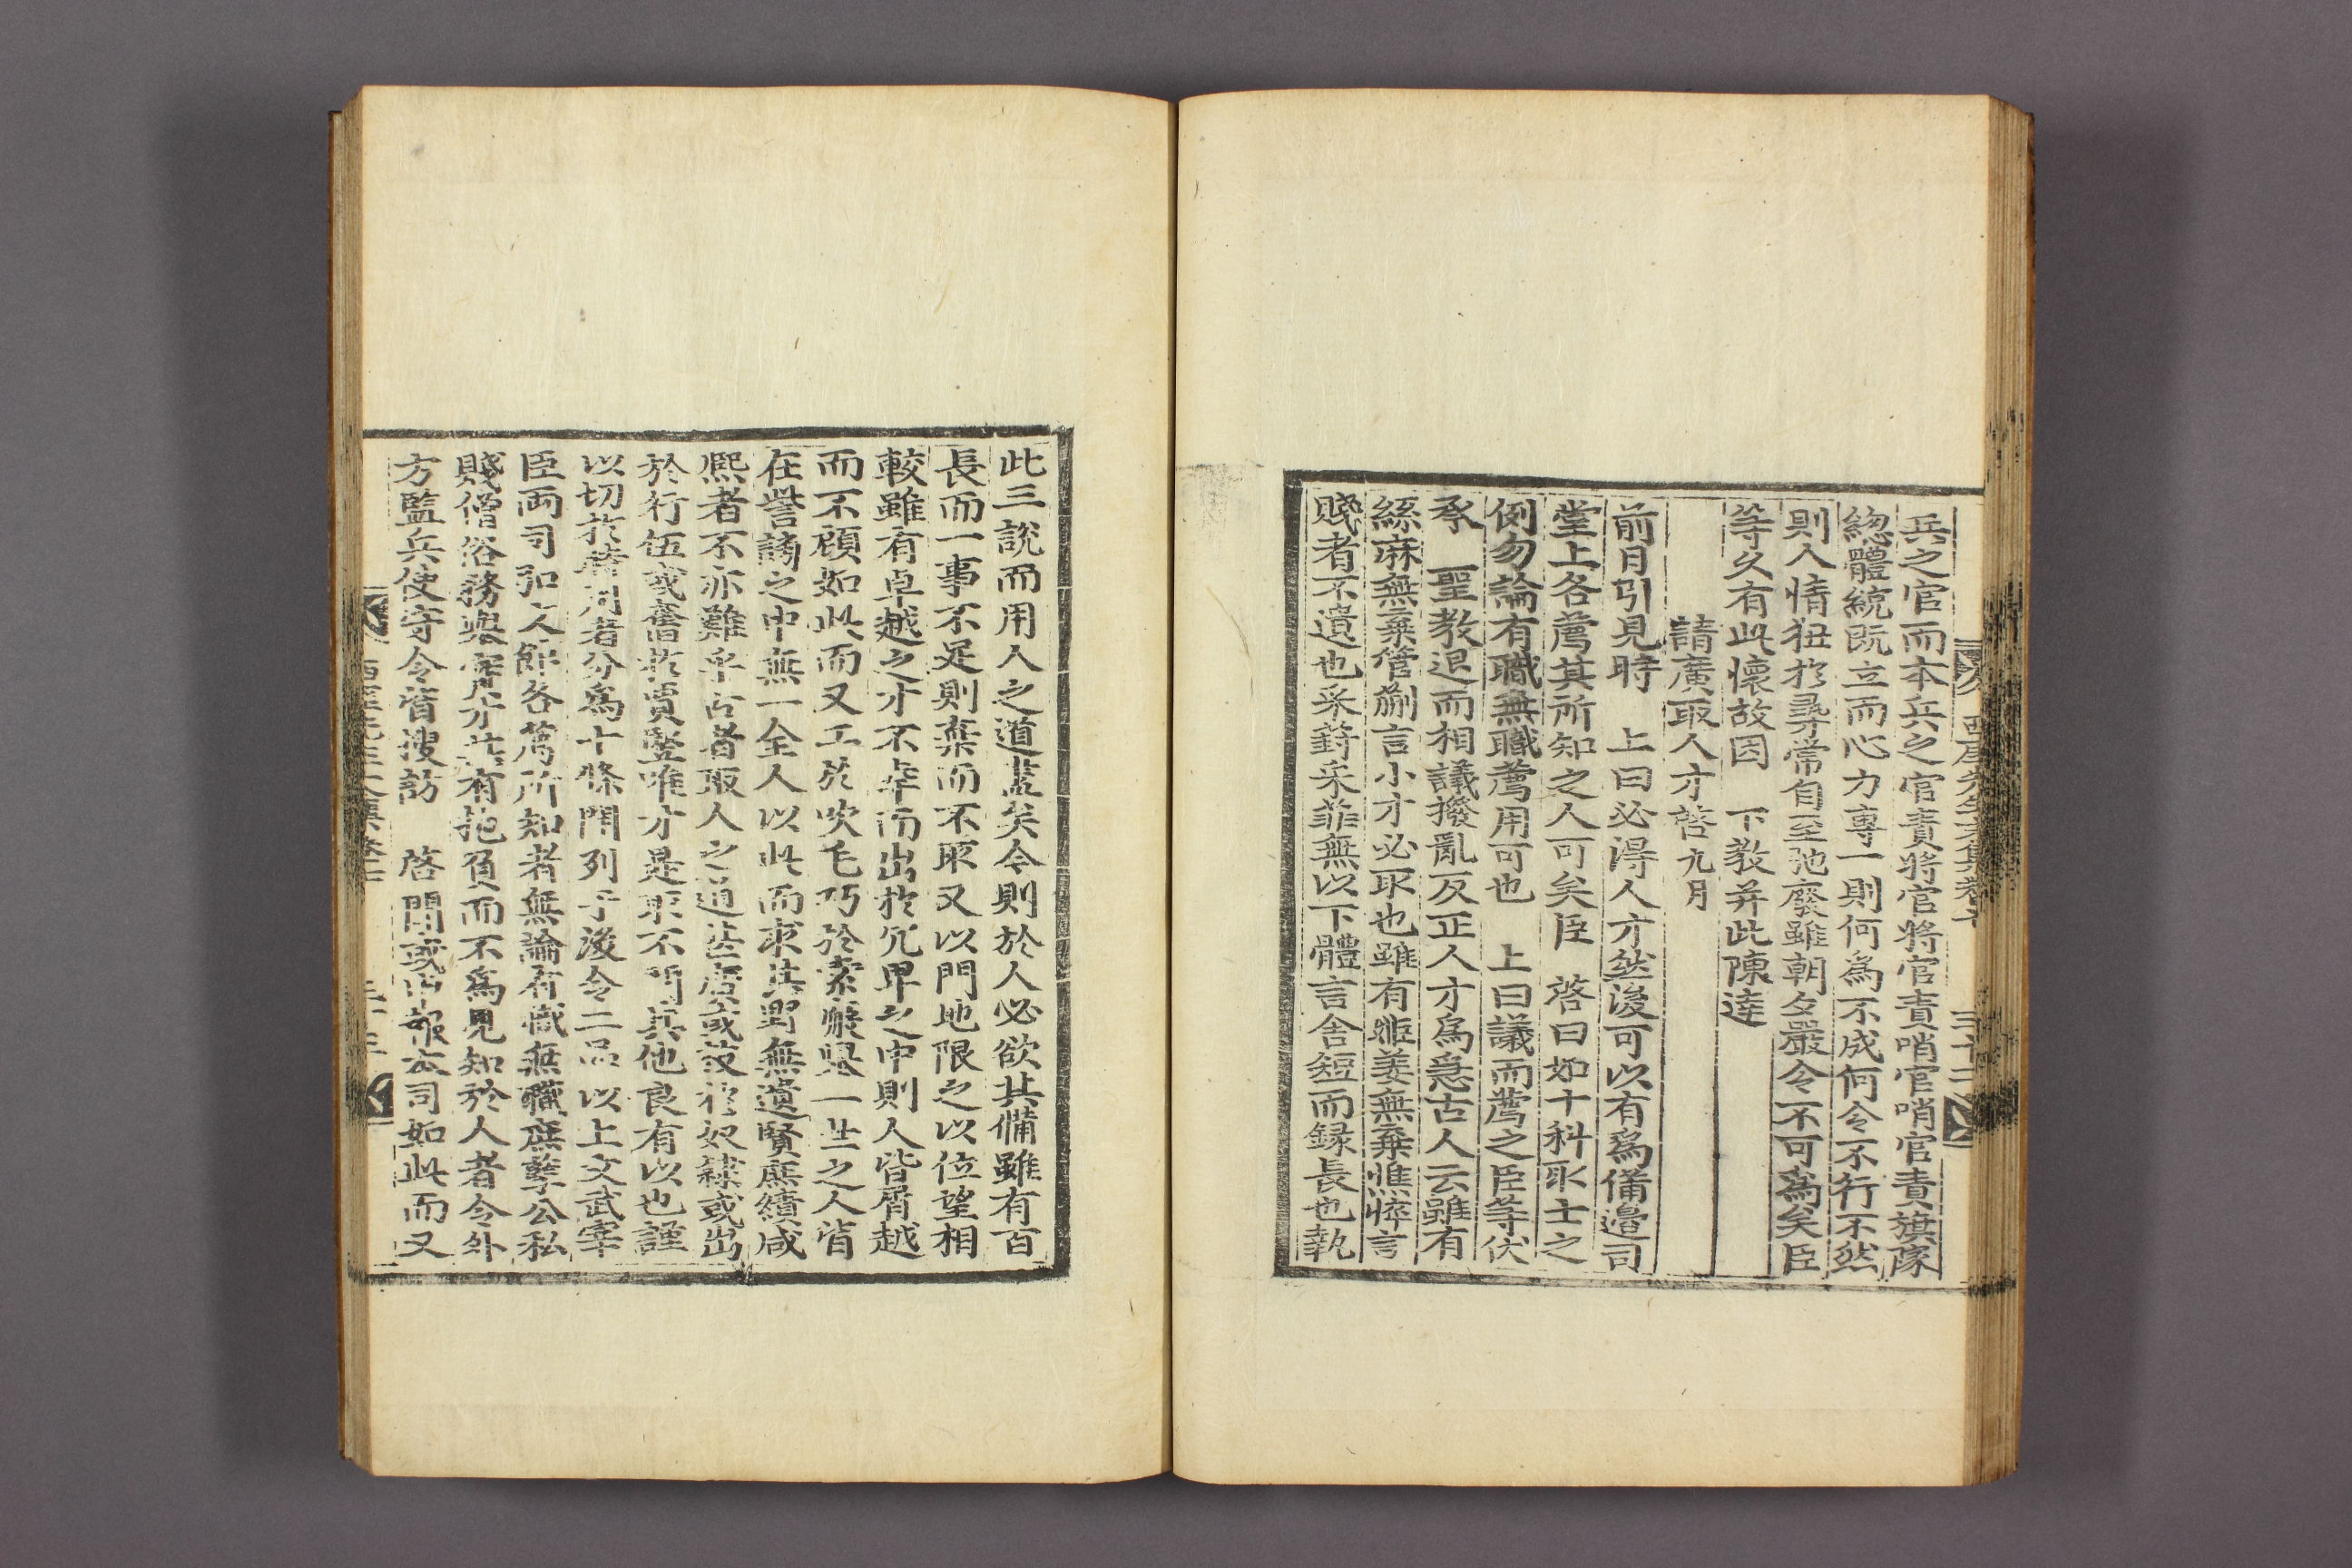 兵之官而本兵之官責將官將官責哨官哨官責旗隊
緫體統既立而心力專一則何爲不成何令不行不然
則人情狃於尋常自至弛廢雖朝夕嚴令不可爲矣臣
等久有此懷故因 下教幷此陳達
請廣取人才啓 九月
前月引見時 上曰必得人才然後可以有爲備邊司
堂上各薦其所知之人可矣臣 啓曰如十科取士之
例勿論有職無職薦用可也 上曰議而薦之臣等伏
承 聖教退而相議撥亂反正人才爲急古人云雖有
絲麻無棄管蒯言小才必取也雖有姬姜無棄憔悴言
賤者不遺也采葑采菲無以下體言舍短而録長也執
西厓先生文集卷七
三十二
此三說而用人之道盡矣今則於人必欲其備雖有百
長而一事不足則棄而不取又以門地限之以位望相
較雖有卓越之才不幸而出於冗卑之中則人皆屑越
而不顧如此而又工於吹毛巧於索瘢畢一世之人皆
在訾謗之中無一全人以此而求其野無遺賢庶績咸
熙者不亦難乎古者取人之道甚廣或拔於奴隸或出
於行伍或奮於賈竪唯才是取不問其他良有以也謹
以切於時用者分爲十條開列于後令二品以上文武宰
臣兩司弘文館各薦所知者無論有職無職庶孽公私
賤僧俗務得實才其有抱負而不爲見知於人者令外
方監兵使守令皆搜訪 啓聞或申報本司如此而又
西厓先生文集卷七
三十三